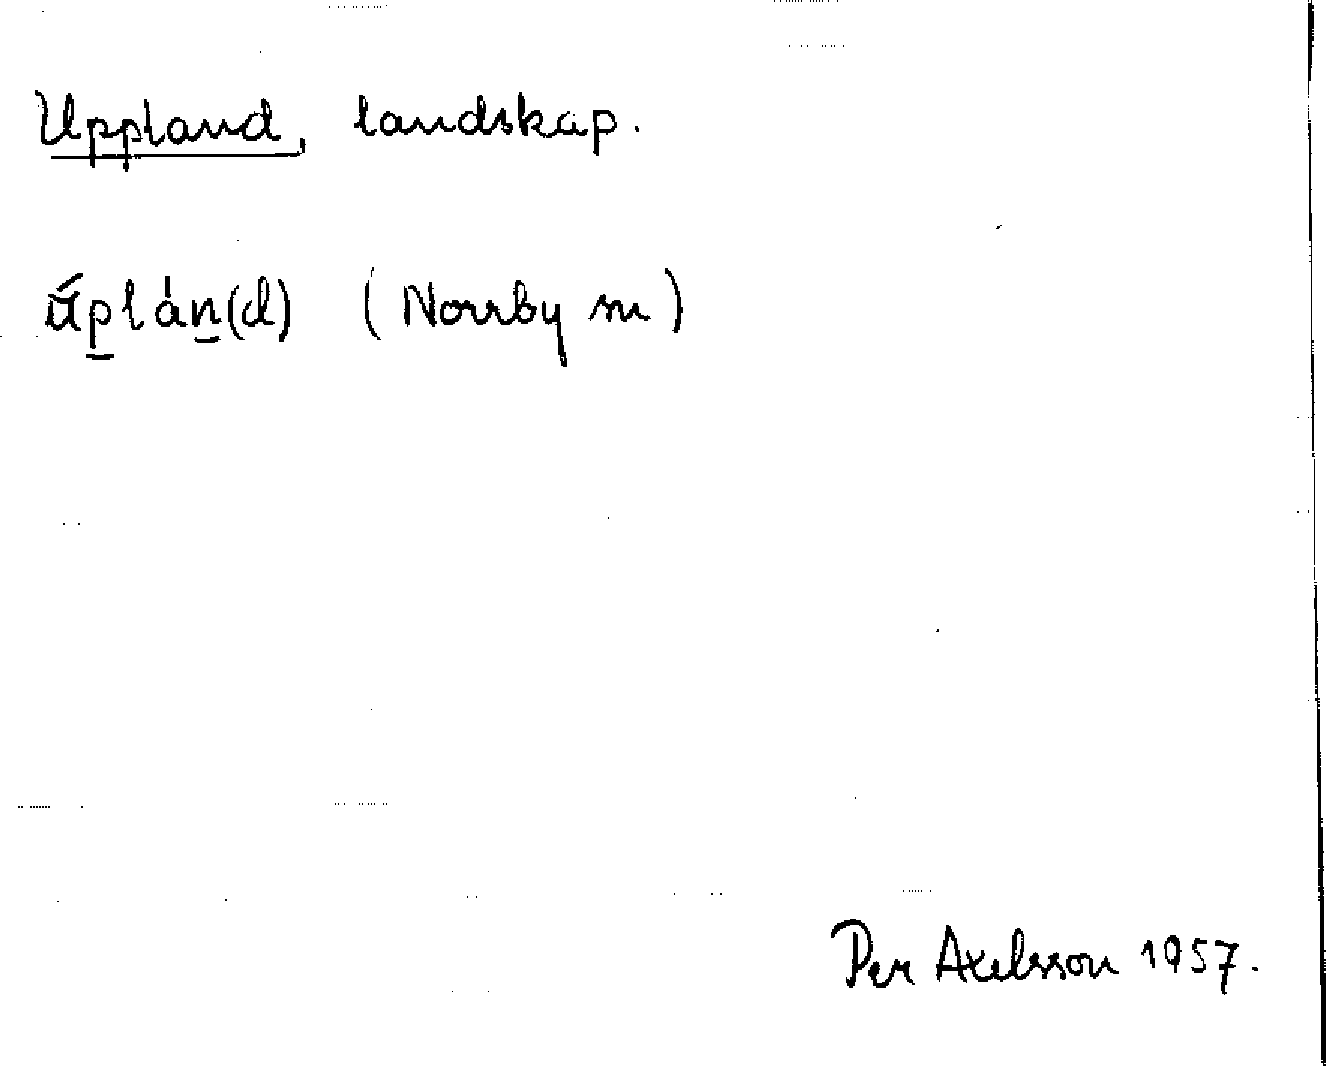 Uppland, landskap.
ű́p̲lán̲(d) (Norrby sn)
Per Axelsson 1957.